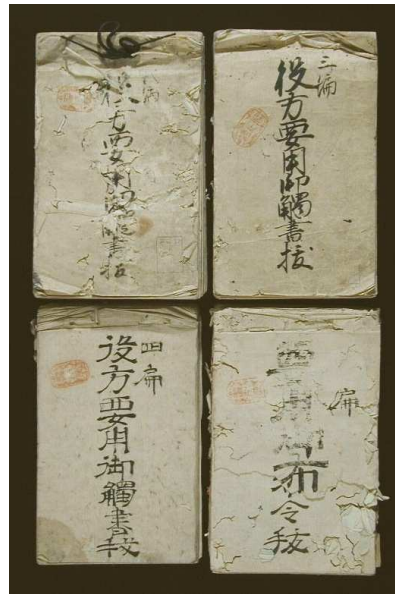 三編
役方要用御觸書抜
編
役方要用御觸書抜
四扁
役方要用御觸書抜
扁
要用御布令抜